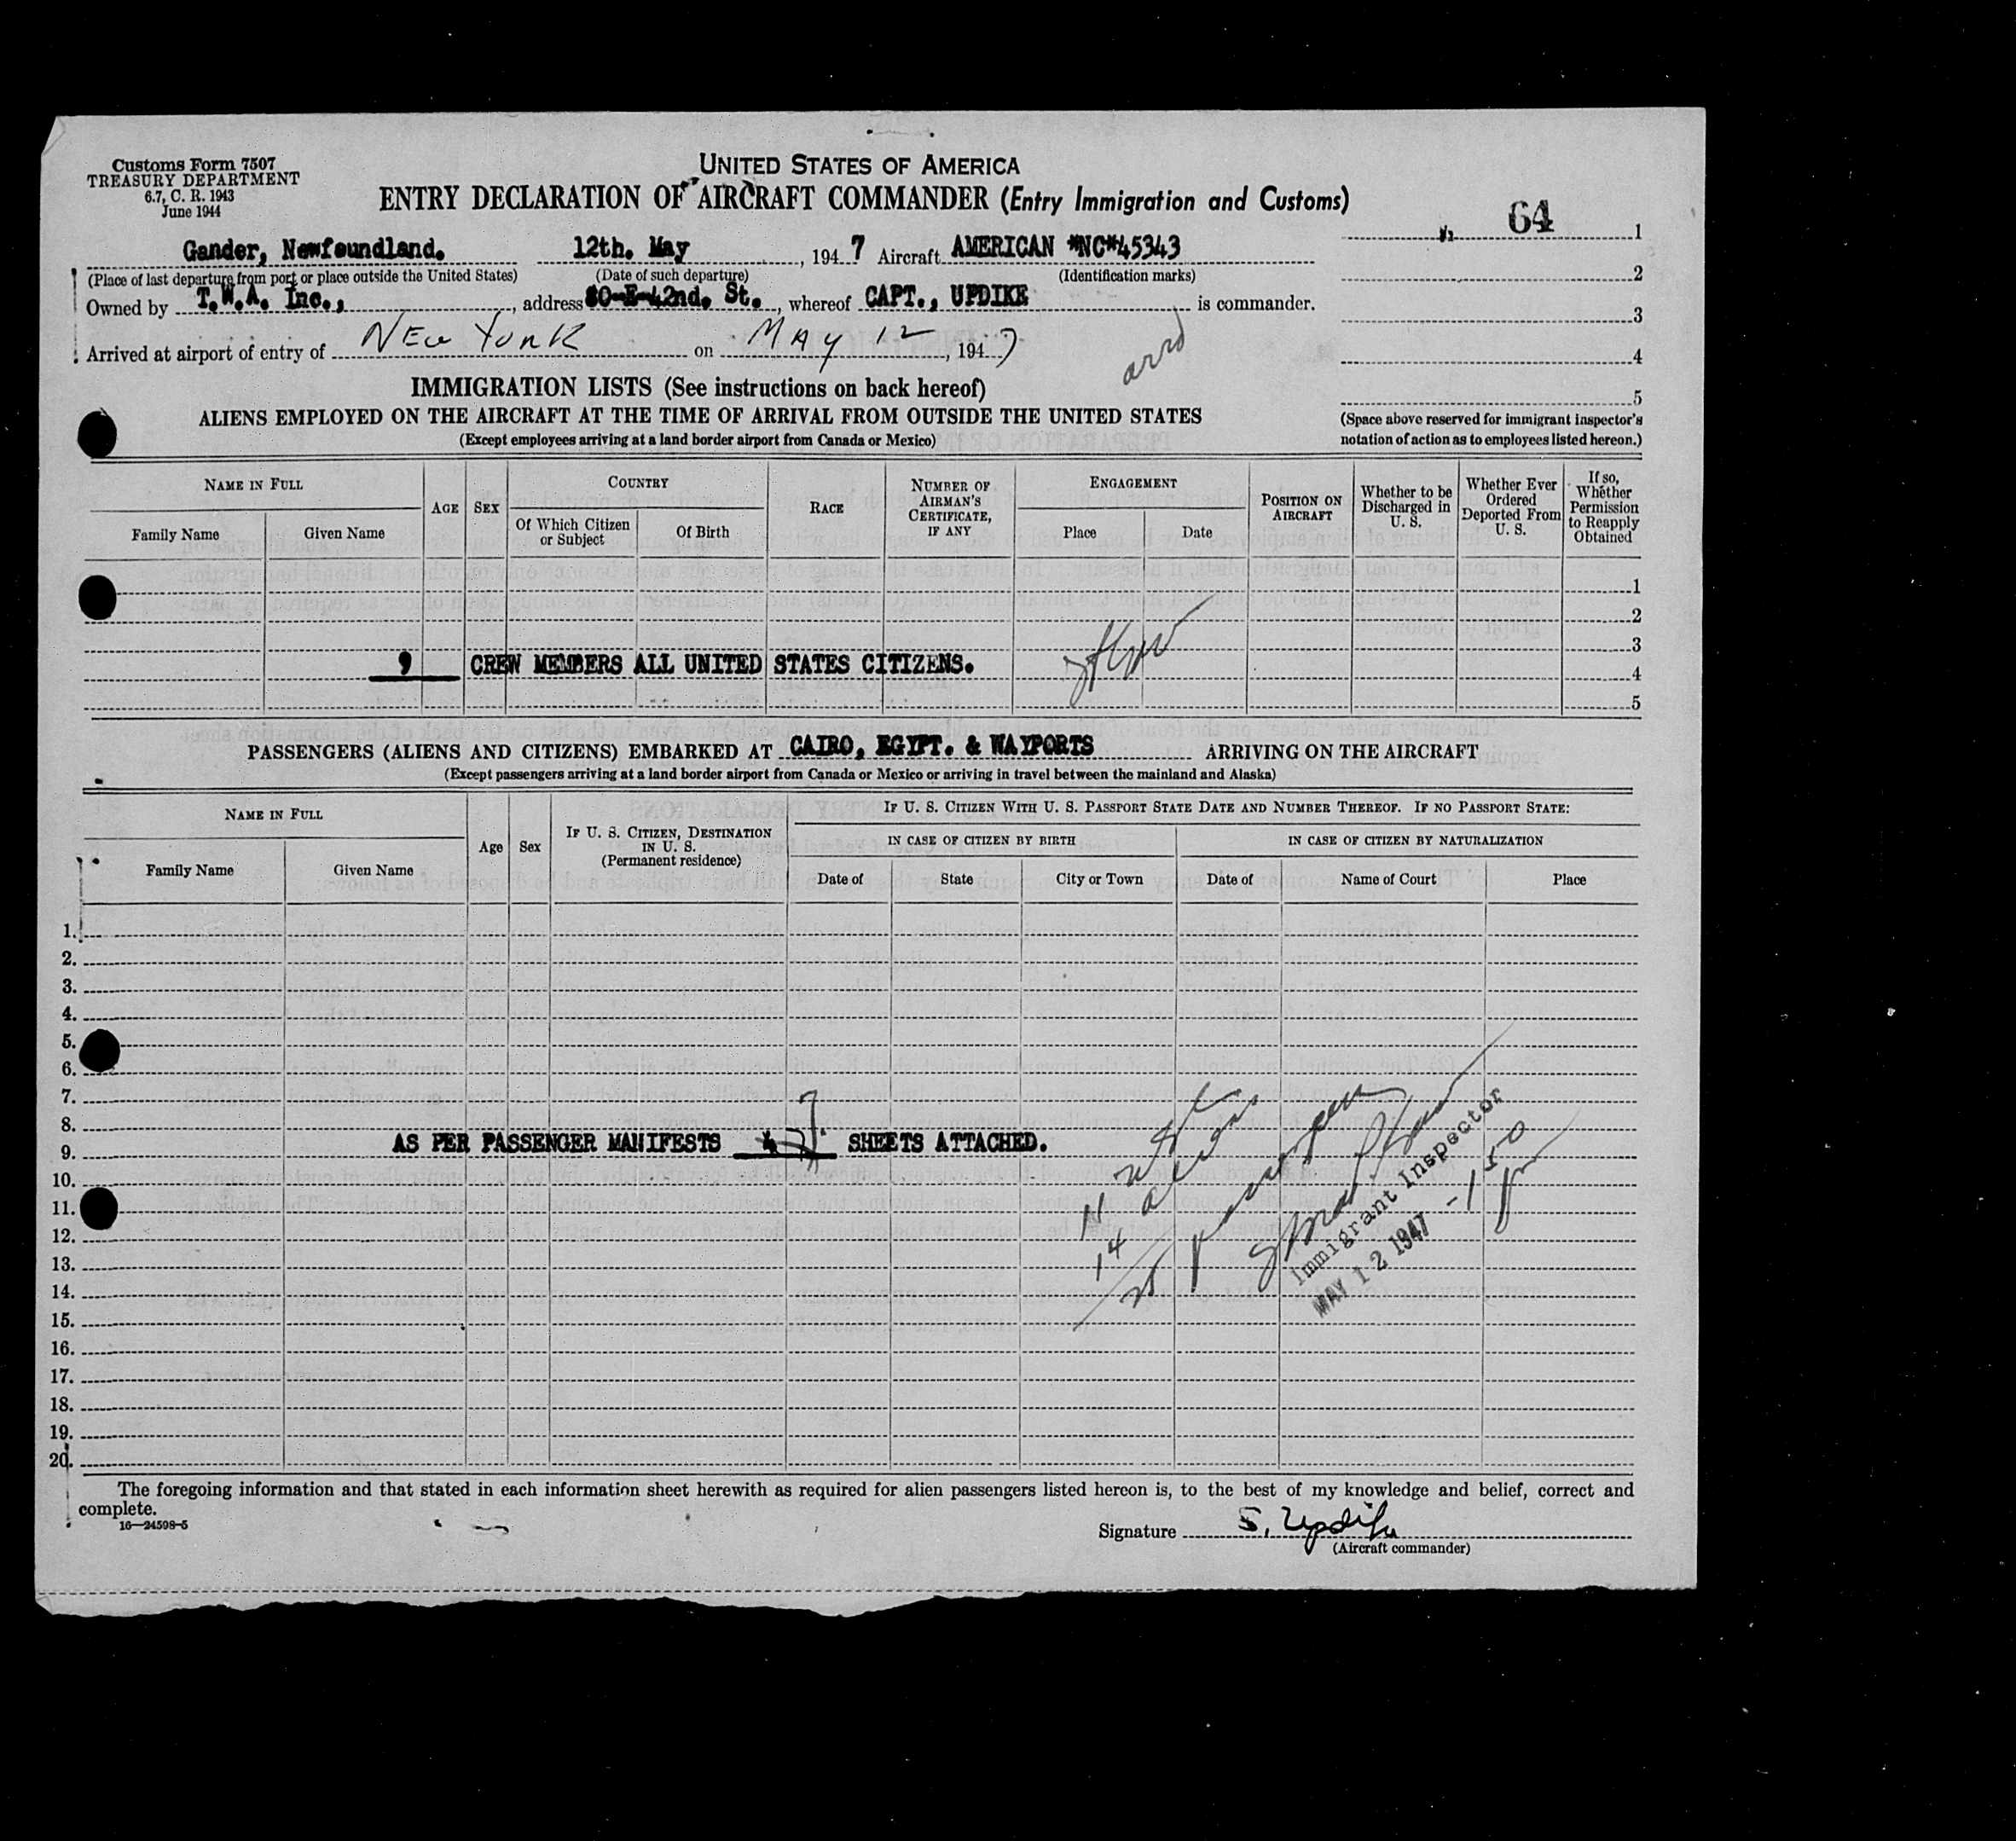 Customs Form 7507
TREASURY DEPARTMENT
6.7, C. R. 1943
June 1944
UNITED STATES OF AMERICA
ENTRY DECLARATION OF AIRCRAFT COMMANDER (Entry Immigration and Customs)
64
Gander, Newfoundland. 12th. May, 194 7 Aircraft AMERICAN *NC*45343
(Place of last departure from port or place outside the United States) (Date of such departure) (Identification marks)
Owned by T.W.A. Inc., address 80-E-42nd. St., whereof CAPT., UPDIKE is commander.
Arrived at airport of entry of NEW YORK on MAY 12, 194 7
arrd
1
2
3
4
5
(Space above reserved for immigrant inspector's
notation of action as to employees listed hereon.)
IMMIGRATION LISTS (See instructions on back hereof)
ALIENS EMPLOYED ON THE AIRCRAFT AT THE TIME OF ARRIVAL FROM OUTSIDE THE UNITED STATES
(Except employees arriving at a land border airport from Canada or Mexico)
NAME IN FULL
Family Name Given Name
AGE
SEX
COUNTRY
Of Which Citizen or Subject Of Birth
RACE
NUMBER OF AIRMAN'S CERTIFICATE, IF ANY
ENGAGEMENT
Place Date
POSITION ON AIRCRAFT
Whether to be Discharged in U. S.
Whether Ever Ordered Deported From U. S.
If so, Whether Permission to Reapply Obtained
1
2
3
9 CREW MEMBERS ALL UNITED STATES CITIZENS. 4
5
PASSENGERS (ALIENS AND CITIZENS) EMBARKED AT CAIRO, EGYPT. & WAYPORTS ARRIVING ON THE AIRCRAFT
(Except passengers arriving at a land border airport from Canada or Mexico or arriving in travel between the mainland and Alaska)
NAME IN FULL
Family Name Given Name
Age
Sex
IF U. S. CITIZEN, DESTINATION IN U. S.
(Permanent residence)
IF U. S. CITIZEN WITH U. S. PASSPORT STATE DATE AND NUMBER THEREOF. IF NO PASSPORT STATE:
IN CASE OF CITIZEN BY BIRTH IN CASE OF CITIZEN BY NATURALIZATION
Date of State City or Town Date of Name of Court Place
1.
2.
3.
4.
5.
6.
7.
8.
9. AS PER PASSENGER MANIFESTS 7 SHEETS ATTACHED.
10.
11.
12.
13.
14.
15.
16.
17.
18.
19.
20.
11 USC
14 aliens
25 passengers
Immigrant Inspector
MAY 12 1947 -1 50 pm
The foregoing information and that stated in each information sheet herewith as required for alien passengers listed hereon is, to the best of my knowledge and belief, correct and
complete.
16—24598-5
Signature S. Updike
(Aircraft commander)